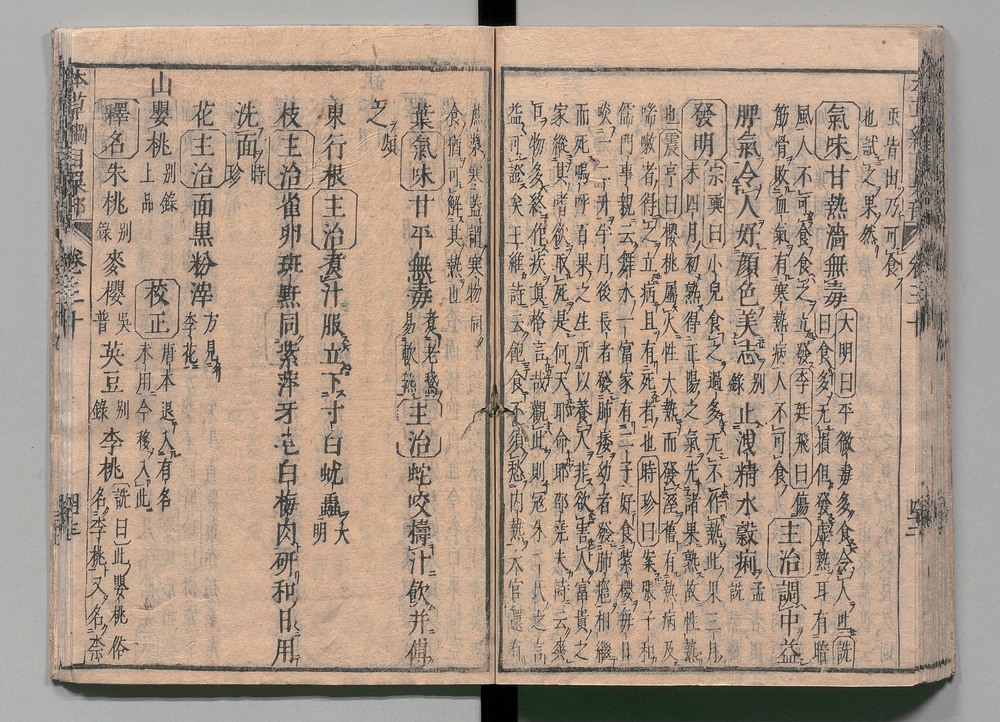 更皆出乃可食
也試之果然
氣味甘熱濇無毒大明曰平微毒多食令人吐詵
曰食多无損但發虛熱耳有暗
風人不可食食之立發李廷飛曰傷
筋骨敗血氣有寒熱病人不可食主治調中益
脾氣令人好顏色美志别錄止洩精水穀痢孟詵
發明宗奭曰小兒食之過多无不作熱此果三月
末四月初熟得正陽之氣先諸果熟故性熱
也震亨曰櫻桃屬火性大熱而發溼舊有熱病及
喘嗽者得之立病且有死者也時珍曰案張子和
儒門事親云舞水一富家有二子好食紫櫻每日
啖一二升半月後長者發肺痿幼者發肺癰相繼
而死嗚呼百果之生所以養人非欲害人富貴之
家縱其嗜欲取死是何天耶命耶邵堯夫詩云爽
口物多終作疾真格言哉觀此則寇朱二氏之言
益可證矣王維詩云飽食不須愁內熱大官還有
蔗漿寒蓋謂寒物同
食猶可解其熱也
葉氣味甘平無毒煮老鵝易軟熟主治蛇咬擣汁飲并傅
之頌
東行根主治煮汁服立下寸白蛔蟲大明
枝主治雀卵斑䵟同紫萍牙皂白梅肉研和日用
洗面時珍
花主治面黑粉滓方見李花
山嬰桃别錄上品 校正唐本退入有名未用今移入此
釋名朱桃别錄麥櫻吳普英豆别錄李桃詵曰此嬰桃俗名李桃又名柰